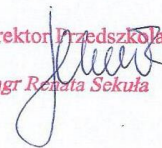 rektor Przedszkola
mgr Renata Sekuła